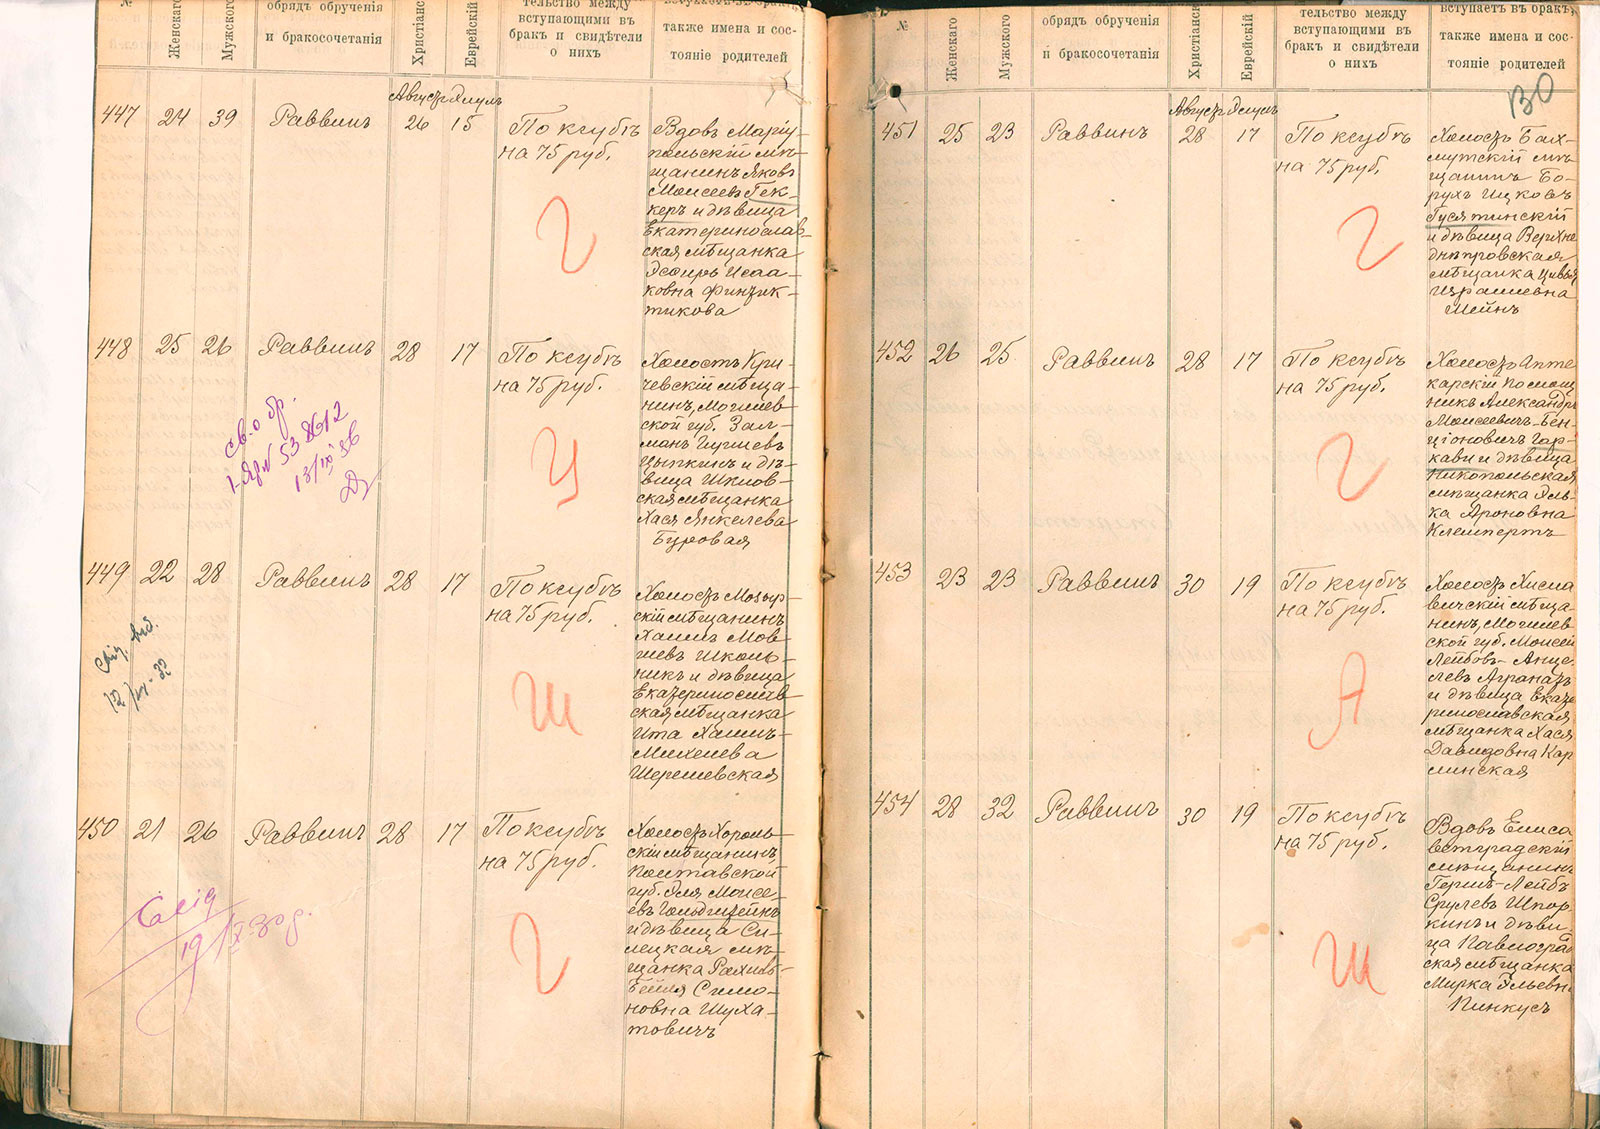 №
Женскаго
Мужского
обрядъ обрученія
и бракосочетанія
Христіанс
Еврейскій
тельство между
вступающими въ
бракъ и свидѣтели
о нихъ
вступаетъ въ бракъ,
также имена и сос-
тояніе родителей
Августъ Элулъ
447 24 39 Раввинъ 26 15
По ксубѣ
на 75 руб.
Г
Вдовъ Маріу-
польскій мѣ-
щанинъ Яковъ
Моисеевъ Гек-
керъ и дѣвица
Екатеринослав-
ская мѣщанка
Эсѳирь Исаа-
ковна Финтик-
тикова
448 25 26 Раввинъ 28 17
По ксубѣ
на 75 руб.
Ц
Холостъ Кри-
чевскій мѣща-
нинъ, Могилев-
ской губ. Зал-
манъ
Цыпкинъ и дѣ-
вица Шклов-
ская мѣщанка
Хася Янкелева
Буровая
св. о бр.
13/IX 36
449 22 28 Раввинъ 28 17
По ксубѣ
на 75 руб.
Ш
Холостъ Мозыр-
скій мѣщанинъ
Хаимъ Мов-
шевъ Школь-
никъ и дѣвица
Екатеринослав
ская мѣщанка
Ита Хаимъ-
Михелева
Шерешевская
450 21 26 Раввинъ 28 17
По ксубѣ
на 75 руб.
Г
Холостъ Хороль-
скій мѣщанинъ,
Полтавской
губ. Эля Моисе-
евъ Гольдштейнъ
и дѣвица Си-
лецкая мѣ-
щанка Рахиль-
Бейля Симо-
новна Шуха-
товичъ
№
Женскаго
Мужского
обрядъ обрученія
и бракосочетанія
Христіанс
Еврейскій
тельство между
вступающими въ
бракъ и свидѣтели
о нихъ
вступаетъ въ бракъ,
также имена и сос-
тояніе родителей
130
Августъ Элулъ
451 25 23 Раввинъ 28 17
По ксубѣ
на 75 руб.
Г
Холостъ Бах-
мутскій мѣ-
щанинъ Бо-
рухъ Ицковъ
Гусятинскій
и дѣвица Верхне
днѣпровская
мѣщанка Цивья
Израилевна
Мейнъ
452 26 25 Раввинъ 28 17
По ксубѣ
на 75 руб.
Г
Холостъ Апте
карскій помощ
никъ Александръ
Моисеевичъ-Бен-
ціоновичъ Гар-
кави и дѣвица
Никопольская
мѣщанка Эль-
ка Ароновна
Клемпертъ
453 23 23 Раввинъ 30 19
По ксубѣ
на 75 руб.
А
Холостъ Хисла
вичскій мѣща-
нинъ, Могилев-
ской губ. Моисей
Лейбовъ-Анце-
левъ
и дѣвица Екате
ринославская
мѣщанка Хася
Давидовна Кар
линская
454 28 32 Раввинъ 30 19
По ксубѣ
на 75 руб.
Ш
Вдовъ Елиса
ветградскій
мѣщанинъ
Гершъ-Лейбъ
Срулевъ Шпор-
кинъ и дѣви-
ца Павлоград
ская мѣщанка
Мирка Эльевна
Пинкусъ